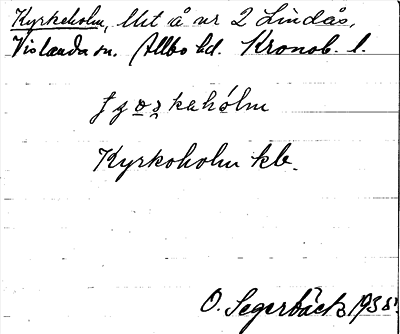 Kyrkeholm, Utst å nr 2 Lindås,
Vislanda sn. Allbo hd. Kronob. l.
kahólm
Kyrkoholm kb.
O. Segerbäck 1935.